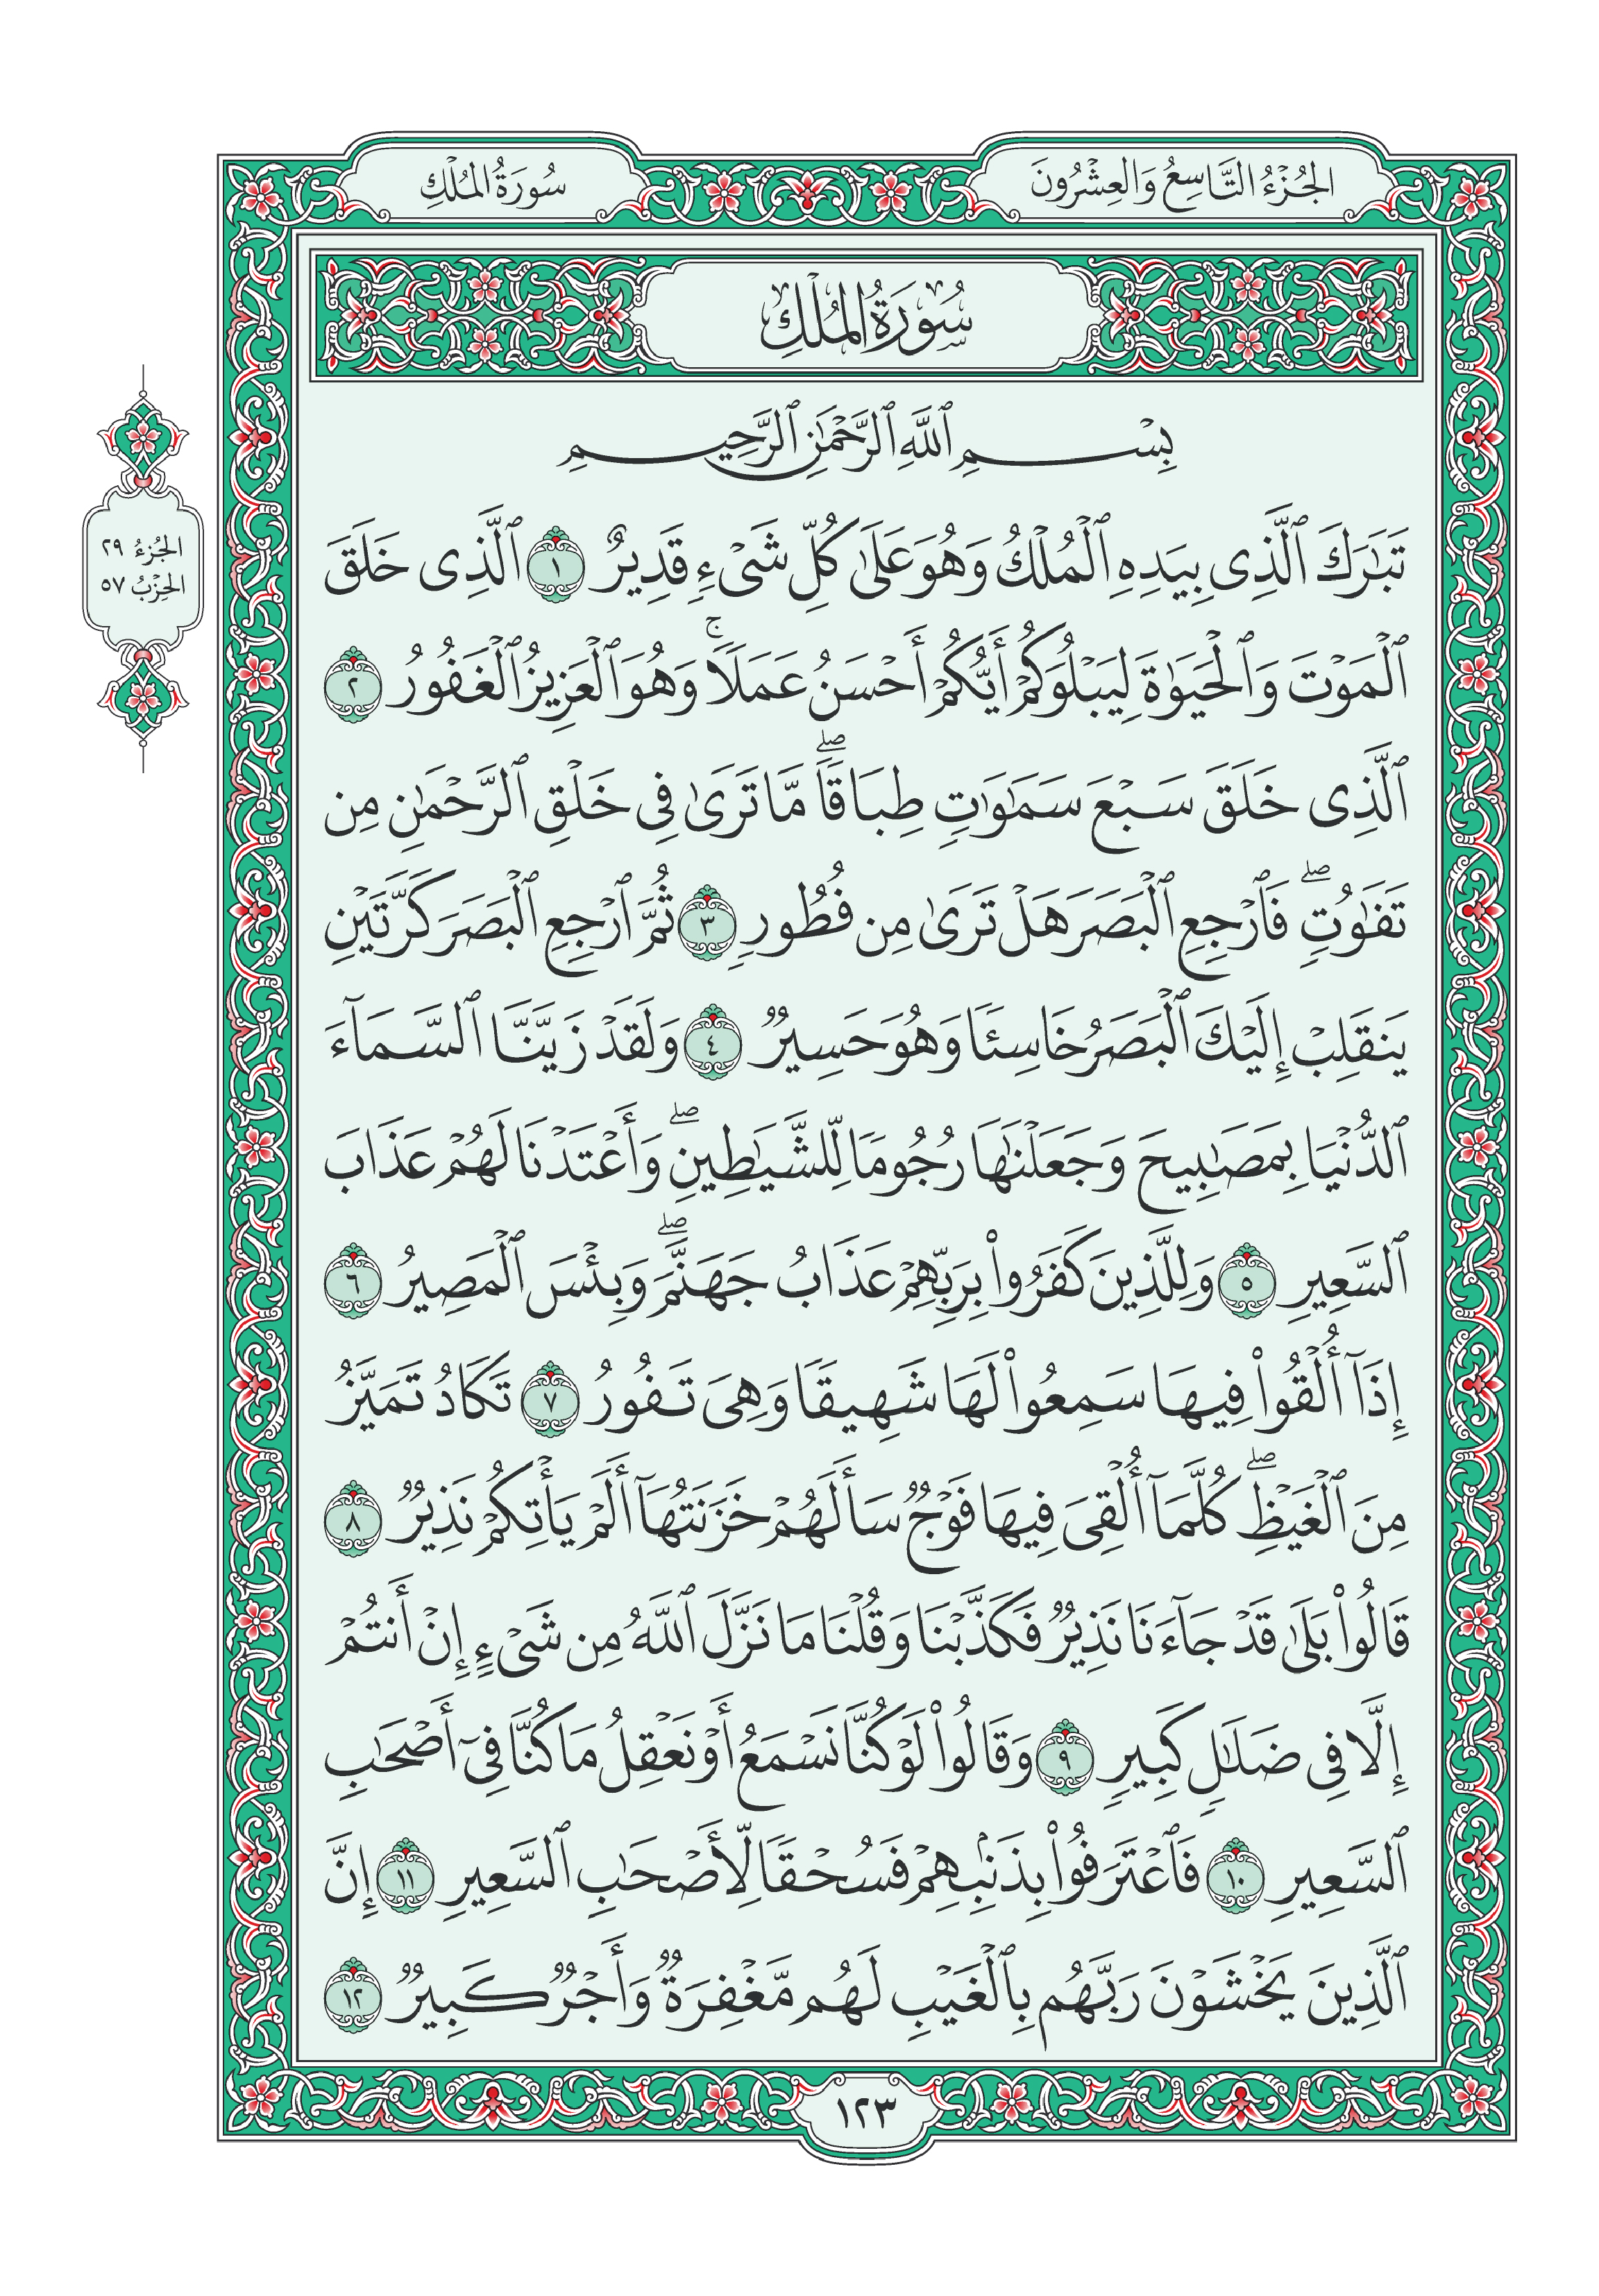 الجُزْءُ التَّاسِعُ وَالعِشْرُونَ
سُورَةُ المُلْكِ
سُورَةُ المُلْكِ
الجُزءُ ٢٩
الحِزْبُ ٥٧
بِسْمِ ٱللَّهِ ٱلرَّحْمَٰنِ ٱلرَّحِيمِ
تَبَٰرَكَ ٱلَّذِى بِيَدِهِ ٱلْمُلْكُ وَهُوَ عَلَىٰ كُلِّ شَىْءٍ قَدِيرٌ ١ ٱلَّذِى خَلَقَ
ٱلْمَوْتَ وَٱلْحَيَوٰةَ لِيَبْلُوَكُمْ أَيُّكُمْ أَحْسَنُ عَمَلًا ۚ وَهُوَ ٱلْعَزِيزُ ٱلْغَفُورُ ٢
ٱلَّذِى خَلَقَ سَبْعَ سَمَٰوَٰتٍ طِبَاقًا ۖ مَّا تَرَىٰ فِى خَلْقِ ٱلرَّحْمَٰنِ مِن
تَفَٰوُتٍ ۖ فَٱرْجِعِ ٱلْبَصَرَ هَلْ تَرَىٰ مِن فُطُورٍ ٣ ثُمَّ ٱرْجِعِ ٱلْبَصَرَ كَرَّتَيْنِ
يَنقَلِبْ إِلَيْكَ ٱلْبَصَرُ خَاسِئًا وَهُوَ حَسِيرٌ ٤ وَلَقَدْ زَيَّنَّا ٱلسَّمَآءَ
ٱلدُّنْيَا بِمَصَٰبِيحَ وَجَعَلْنَٰهَا رُجُومًا لِّلشَّيَٰطِينِ ۖ وَأَعْتَدْنَا لَهُمْ عَذَابَ
ٱلسَّعِيرِ ٥ وَلِلَّذِينَ كَفَرُوا۟ بِرَبِّهِمْ عَذَابُ جَهَنَّمَ ۖ وَبِئْسَ ٱلْمَصِيرُ ٦
إِذَآ أُلْقُوا۟ فِيهَا سَمِعُوا۟ لَهَا شَهِيقًا وَهِىَ تَفُورُ ٧ تَكَادُ تَمَيَّزُ
مِنَ ٱلْغَيْظِ ۖ كُلَّمَآ أُلْقِىَ فِيهَا فَوْجٌ سَأَلَهُمْ خَزَنَتُهَآ أَلَمْ يَأْتِكُمْ نَذِيرٌ ٨
قَالُوا۟ بَلَىٰ قَدْ جَآءَنَا نَذِيرٌ فَكَذَّبْنَا وَقُلْنَا مَا نَزَّلَ ٱللَّهُ مِن شَىْءٍ إِنْ أَنتُمْ
إِلَّا فِى ضَلَٰلٍ كَبِيرٍ ٩ وَقَالُوا۟ لَوْ كُنَّا نَسْمَعُ أَوْ نَعْقِلُ مَا كُنَّا فِىٓ أَصْحَٰبِ
ٱلسَّعِيرِ ١٠ فَٱعْتَرَفُوا۟ بِذَنۢبِهِمْ فَسُحْقًا لِّأَصْحَٰبِ ٱلسَّعِيرِ ١١ إِنَّ
ٱلَّذِينَ يَخْشَوْنَ رَبَّهُم بِٱلْغَيْبِ لَهُم مَّغْفِرَةٌ وَأَجْرٌ كَبِيرٌ ١٢
١٢٣